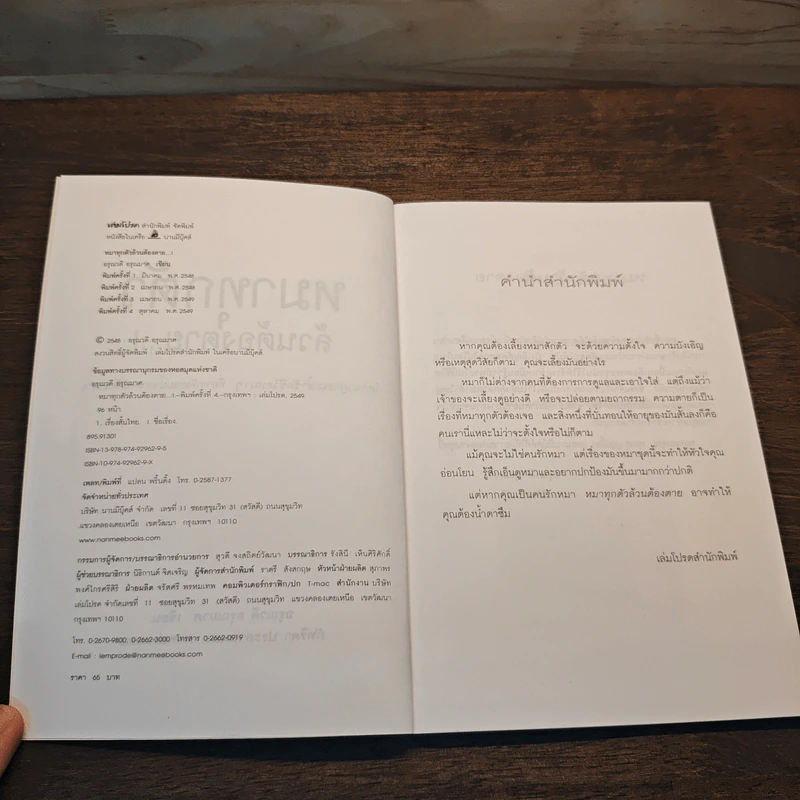 เล่มโปรด สำนักพิมพ์ จัดพิมพ์
หนังสือในเครือ นานมีบุ๊คส์
หมาทุกตัวล้วนต้องตาย...!
อรุณวดี อรุณมาศ เขียน
พิมพ์ครั้งที่ 1 มีนาคม พ.ศ. 2548
พิมพ์ครั้งที่ 2 เมษายน พ.ศ. 2548
พิมพ์ครั้งที่ 3 เมษายน พ.ศ. 2549
พิมพ์ครั้งที่ 4 ตุลาคม พ.ศ. 2549
© 2548 : อรุณวดี อรุณมาศ
สงวนสิทธิ์ผู้จัดพิมพ์ : เล่มโปรดสำนักพิมพ์ ในเครือนานมีบุ๊คส์
ข้อมูลทางบรรณานุกรมของหอสมุดแห่งชาติ
อรุณวดี อรุณมาศ.
หมาทุกตัวล้วนต้องตาย...!--พิมพ์ครั้งที่ 4--กรุงเทพฯ : เล่มโปรด, 2549.
96 หน้า
1. เรื่องสั้นไทย. I. ชื่อเรื่อง.
895.91301
ISBN-13-978-974-92962-9-5
ISBN-10-974-92962-9-X
เพลท/พิมพ์ที่ แปลน พริ้นติ้ง โทร. 0-2587-1377
จัดจำหน่ายทั่วประเทศ
บริษัท นานมีบุ๊คส์ จำกัด เลขที่ 11 ซอยสุขุมวิท 31 (สวัสดี) ถนนสุขุมวิท
แขวงคลองเตยเหนือ เขตวัฒนา กรุงเทพฯ 10110
www.nanmeebooks.com
กรรมการผู้จัดการ/บรรณาธิการอำนวยการ สุวดี จงสถิตย์วัฒนา บรรณาธิการ รังสิมี เห็นศิริศักดิ์
ผู้ช่วยบรรณาธิการ นิธิกานต์ จิตเจริญ ผู้จัดการสำนักพิมพ์ ราตรี สังสกฤษ หัวหน้าฝ่ายผลิต สุภาพร
พงศ์ไกรศรีสิริ ฝ่ายผลิต จรัสศรี พรหมเทพ คอมพิวเตอร์กราฟิก/ปก 1-mac สำนักงาน บริษัท
เล่มโปรด จำกัดเลขที่ 11 ซอยสุขุมวิท 31 (สวัสดี) ถนนสุขุมวิท แขวงคลองเตยเหนือ เขตวัฒนา
กรุงเทพฯ 10110
โทร. 0-2670-9800, 0-2662-3000 โทรสาร 0-2662-0919
E-mail : lemprode@nanmeebooks.com
ราคา 65 บาท
คำนำสำนักพิมพ์
หากคุณต้องเลี้ยงหมาสักตัว จะด้วยความตั้งใจ ความบังเอิญ
หรือเหตุสุดวิสัยก็ตาม คุณจะเลี้ยงมันอย่างไร
หมาก็ไม่ต่างจากคนที่ต้องการการดูแลและเอาใจใส่ แต่ถึงแม้ว่า
เจ้าของจะเลี้ยงดูอย่างดี หรือจะปล่อยตามยถากรรม ความตายก็เป็น
เรื่องที่หมาทุกตัวต้องเจอ และสิ่งหนึ่งที่บั่นทอนให้อายุของมันสั้นลงก็คือ
คนเรานี่แหละไม่ว่าจะตั้งใจหรือไม่ก็ตาม
แม้คุณจะไม่ใช่คนรักหมา แต่เรื่องของหมาชุดนี้จะทำให้หัวใจคุณ
อ่อนโยน รู้สึกเอ็นดูหมาและอยากปกป้องมันขึ้นมามากกว่าปกติ
แต่หากคุณเป็นคนรักหมา หมาทุกตัวล้วนต้องตาย อาจทำให้
คุณต้องน้ำตาซึม
เล่มโปรดสำนักพิมพ์